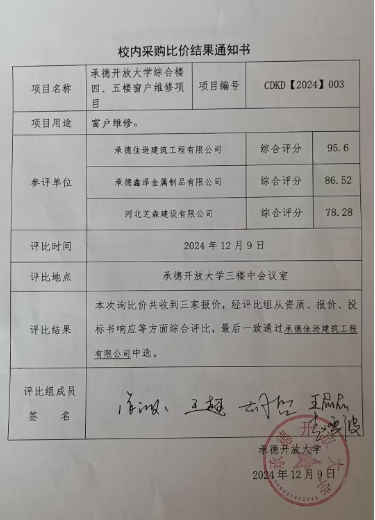 校内采购比价结果通知书
项目名称
承德开放大学综合楼
四、五楼窗户维修项
目
项目编号
CDKD【2024】003
项目用途
窗户维修。
参评单位
承德佳逊建筑工程有限公司
综合评分
95.6
承德鑫泽金属制品有限公司
综合评分
86.52
河北芝森建设有限公司
综合评分
78.28
评比时间
2024年12月9日
评比地点
承德开放大学三楼中会议室
评比结果
本次询比价共收到三家报价，经评比组从资质、报价、投
标书响应等方面综合评比，最后一致通过承德佳逊建筑工程
有限公司中选。
评比组成员
签 名
承德开放大学
2024年12月9日